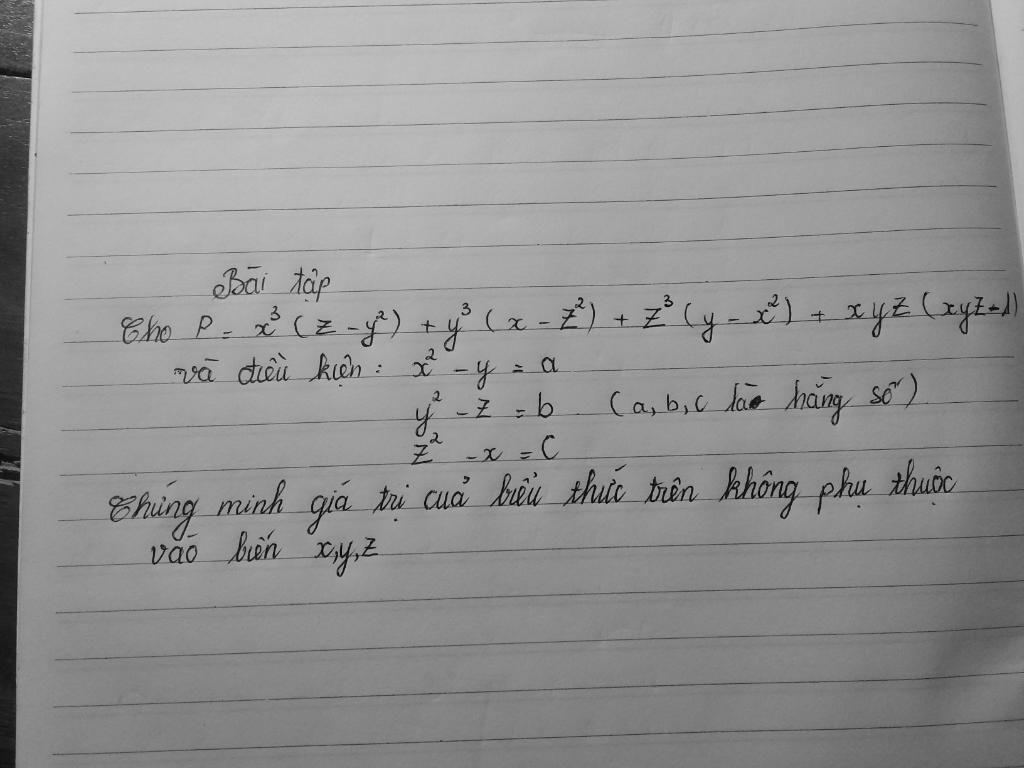 Bài tập
Cho P = x³ (z - y²) + y³ (x - z²) + z³ (y - x²) + xyz (xyz - 1)
và điều kiện : x² - y = a
y² - z = b (a, b, c là hằng số)
z² - x = c
Chứng minh giá trị của biểu thức trên không phụ thuộc
vào biến x, y, z